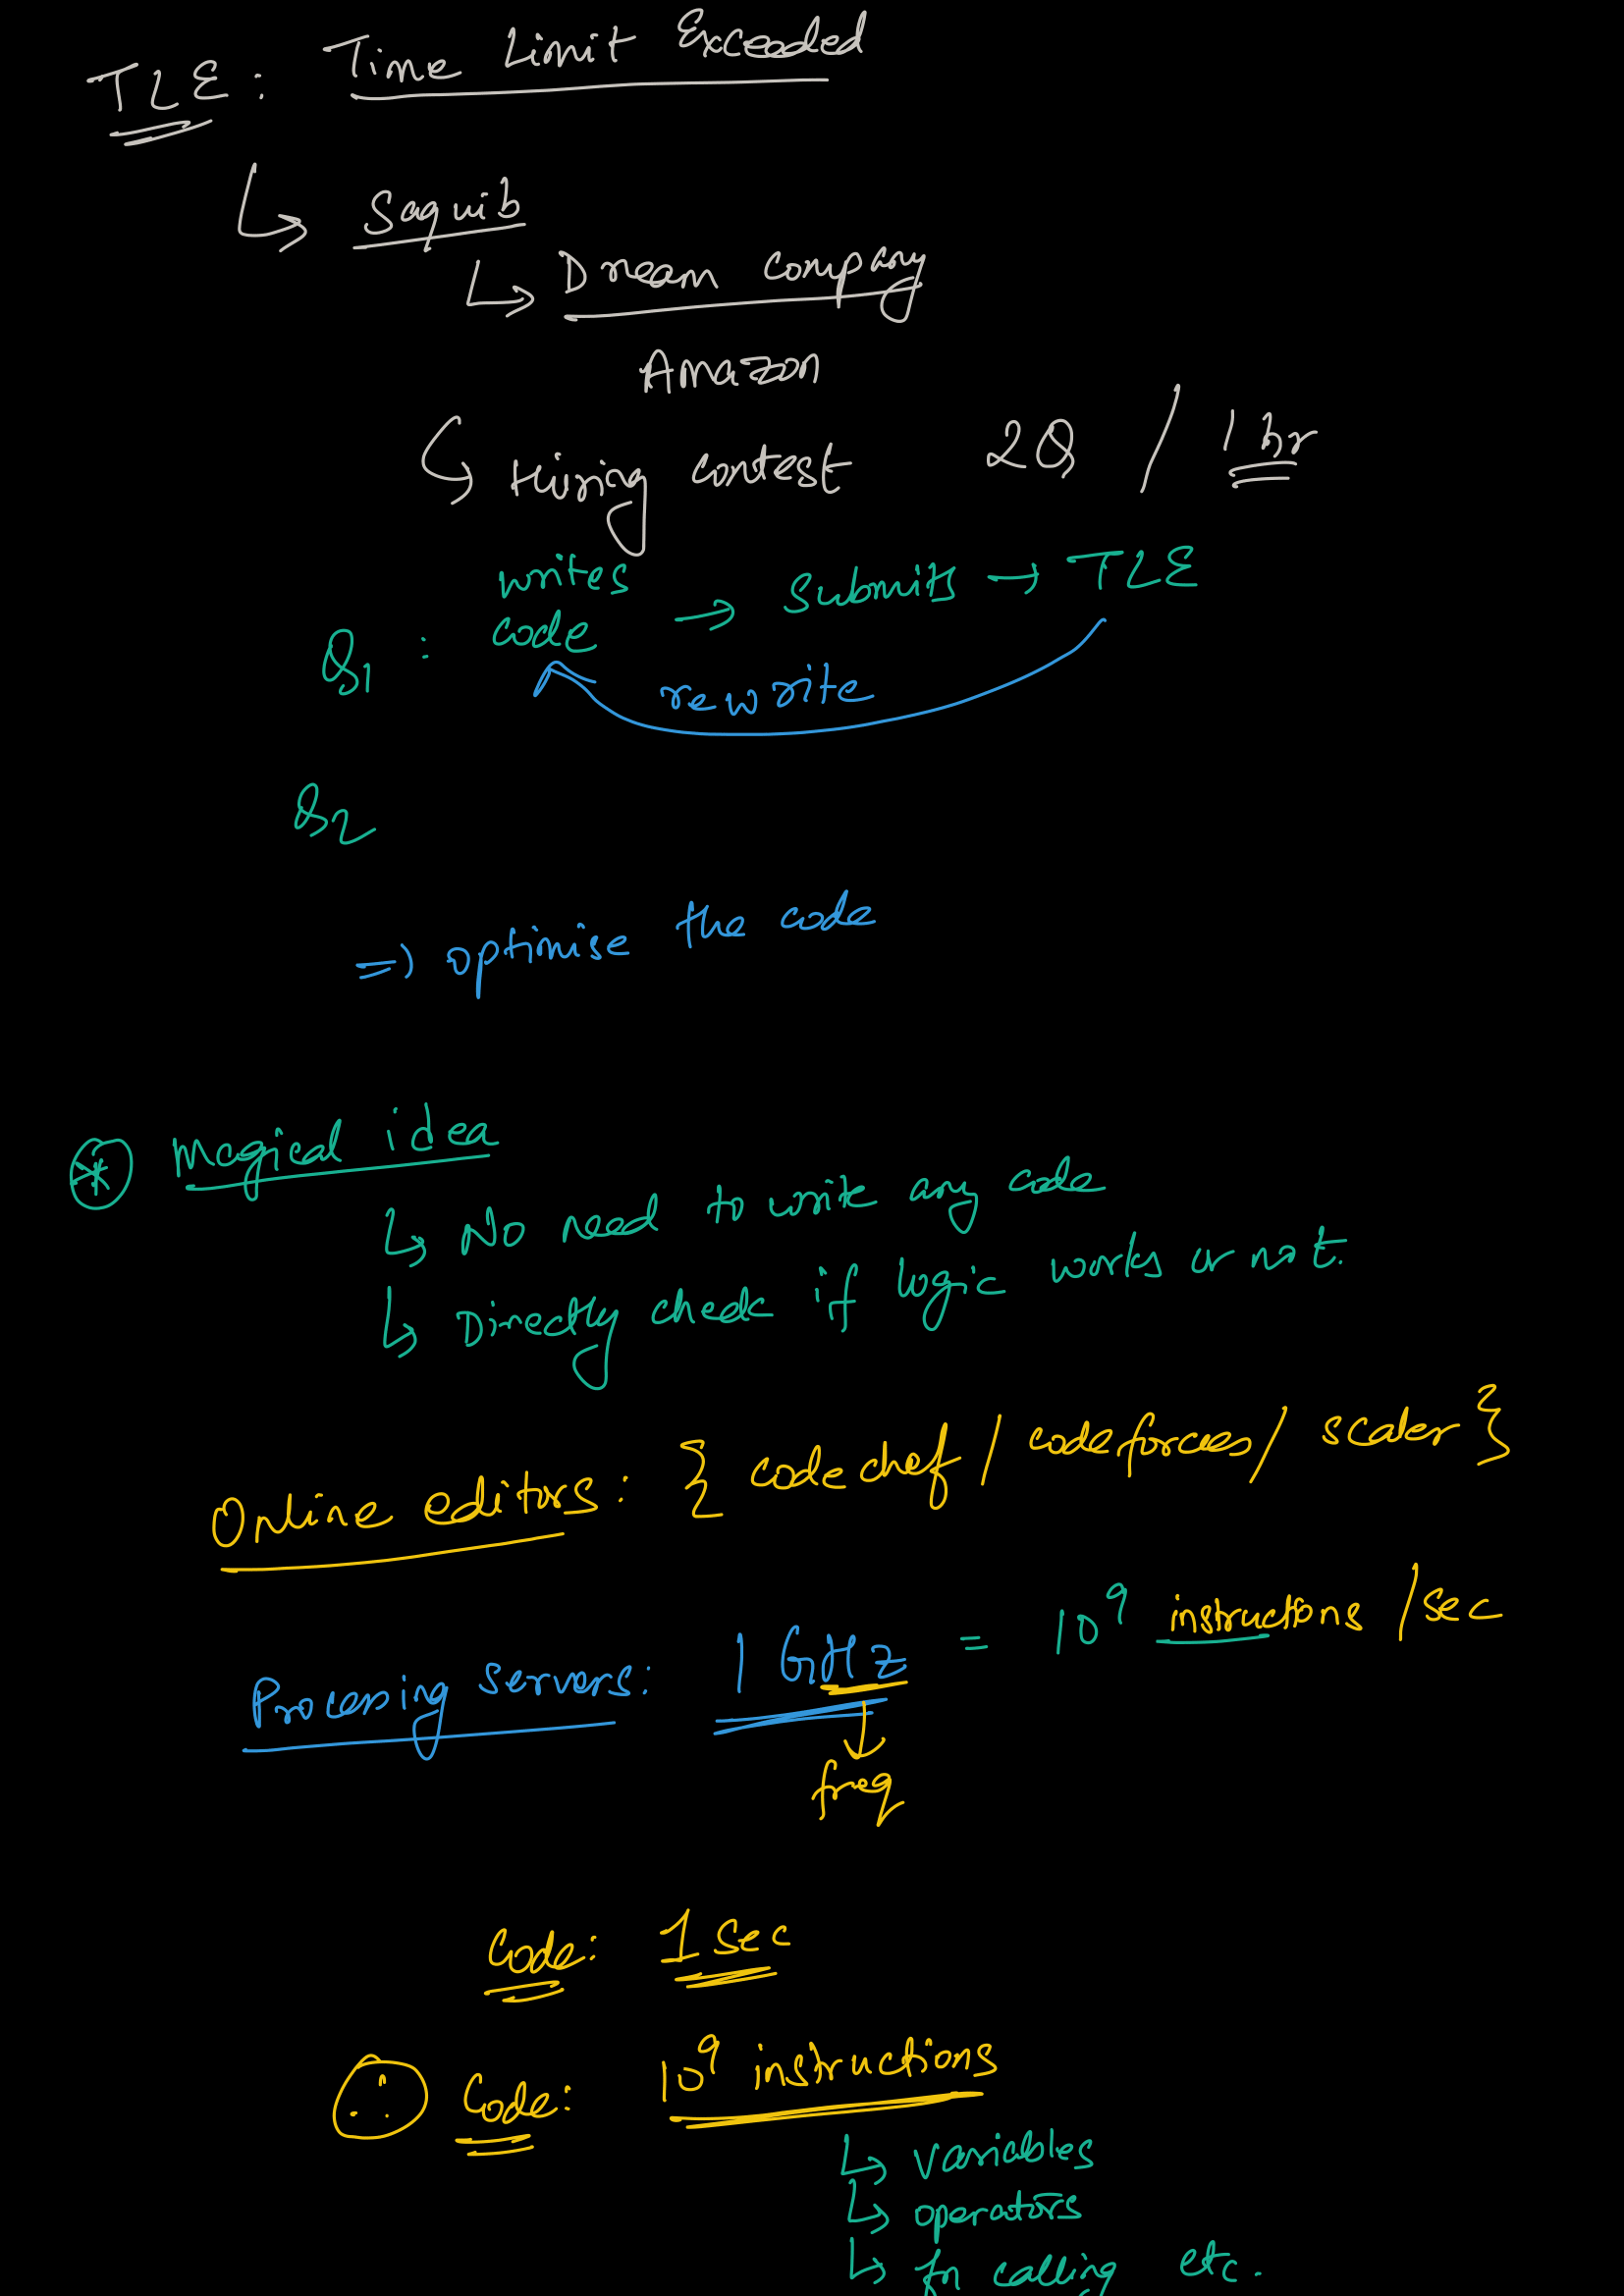 TLE : Time Limit Exceeded
↳ Saquib
↳ Dream company
Amazon
↳ Hiring contest 2Q / 1 hr
Q1 : writes code → Submits → TLE
rewrite
Q2
=> optimise the code
* Magical idea
↳ No need to write any code
↳ Directly check if logic works or not.
Online editors : { codechef / codeforces / scaler }
Processing servers : 1 GHz = 10^9 instructions / sec
↓
freq
Code : 1 sec
∴ Code : 10^9 instructions
↳ variables
↳ operators
↳ fn calling etc.